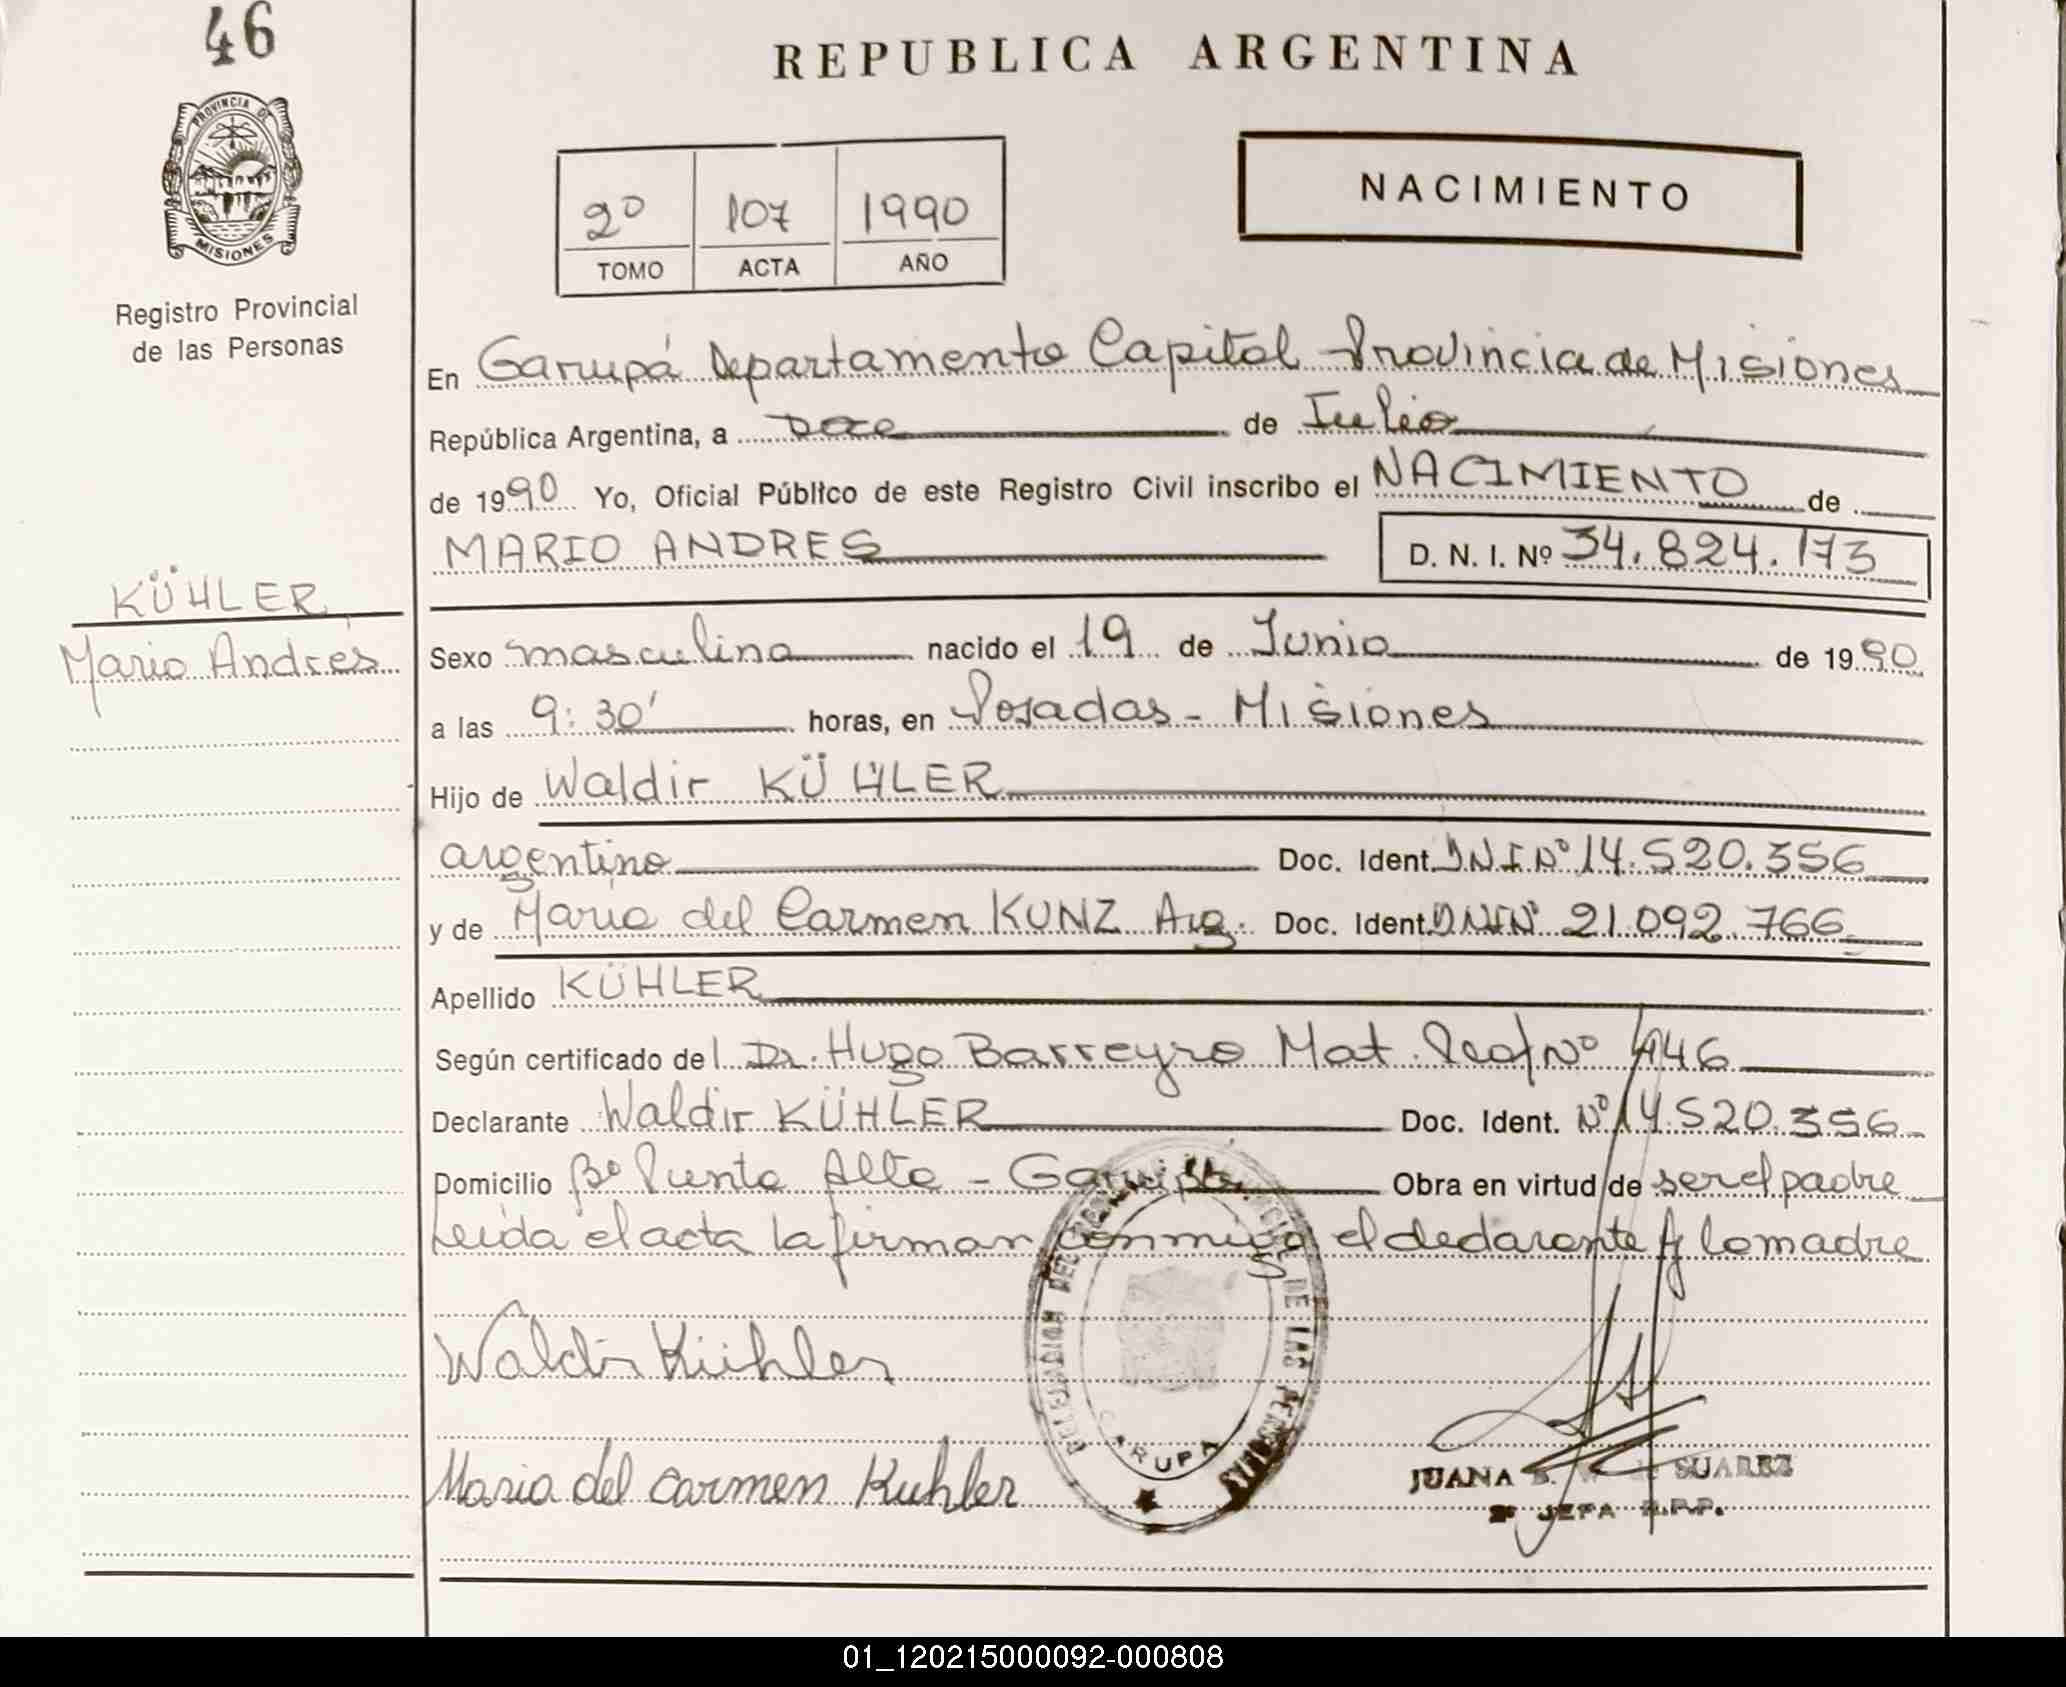 46
PROVINCIA DE
MISIONES
Registro Provincial
de las Personas
KÜHLER
Mario Andrés
REPUBLICA ARGENTINA
2º 107 1990
TOMO ACTA AÑO
NACIMIENTO
En Garupá Departamento Capital Provincia de Misiones
República Argentina, a Doce de Julio
de 1990 Yo, Oficial Público de este Registro Civil inscribo el NACIMIENTO de
MARIO ANDRES D. N. I. Nº 34.824.173
Sexo masculino nacido el 19 de Junio de 1990
a las 9:30' horas, en Posadas - Misiones
Hijo de Waldir KÜHLER
argentino Doc. Ident. D.N.I.Nº 14.520.356
y de Maria del Carmen KUNZ Arg. Doc. Ident. DNINº 21.092.766
Apellido KÜHLER
Según certificado del Dr. Hugo Barreyro Mat. Prof Nº 446
Declarante Waldir KÜHLER Doc. Ident. Nº 14.520.356
Domicilio Bº Punta Alta - Garupá Obra en virtud de ser el padre
Leida el acta la firman conmigo el declarante y la madre
Waldir Kühler
Maria del Carmen Kuhler
DELEGACION DEL REGISTRO PROVINCIAL DE LAS PERSONAS
GARUPA
JUANA B. SUAREZ
JEFA R.P.P.
01_120215000092-000808